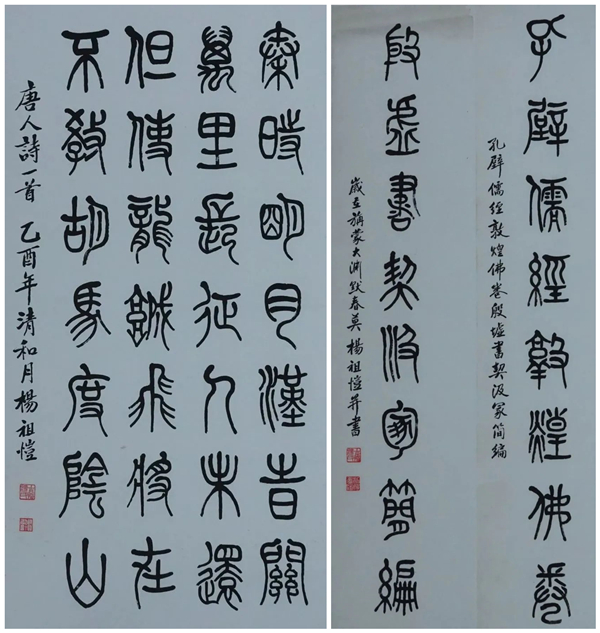 秦時明月漢旹關
萬里長征人未還
但使龍城飛將在
不教胡馬度陰山
唐人詩一首 乙酉年清和月楊祖愷
孔壁儒經敦煌佛卷
孔壁儒經敦煌佛卷殷墟書契汲冢简編
殷虛書契汲冢簡編
歲在旃蒙大淵献春莫 楊祖愷并書